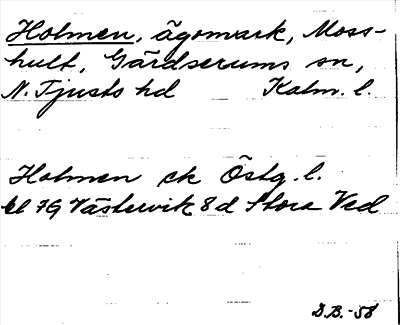 Holmen, ägomark, Moss-
hult, Gärdserums sn,
N. Tjusts hd Kalm. l.
Holmen ek Östg. l.
bl 7G Västervik 8d Stora Ved
D.B.-58